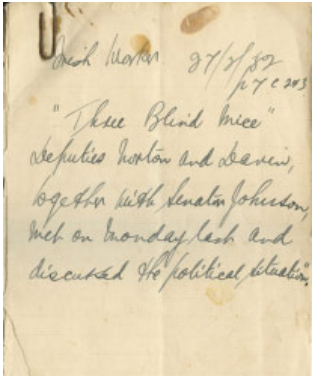 Irish Worker 27/2/32
p 7 C 2 & 3
"Three Blind Mice"
Deputies Norton and Davin,
together with Senator Johnson,
met on Monday last and
discussed the political situation".